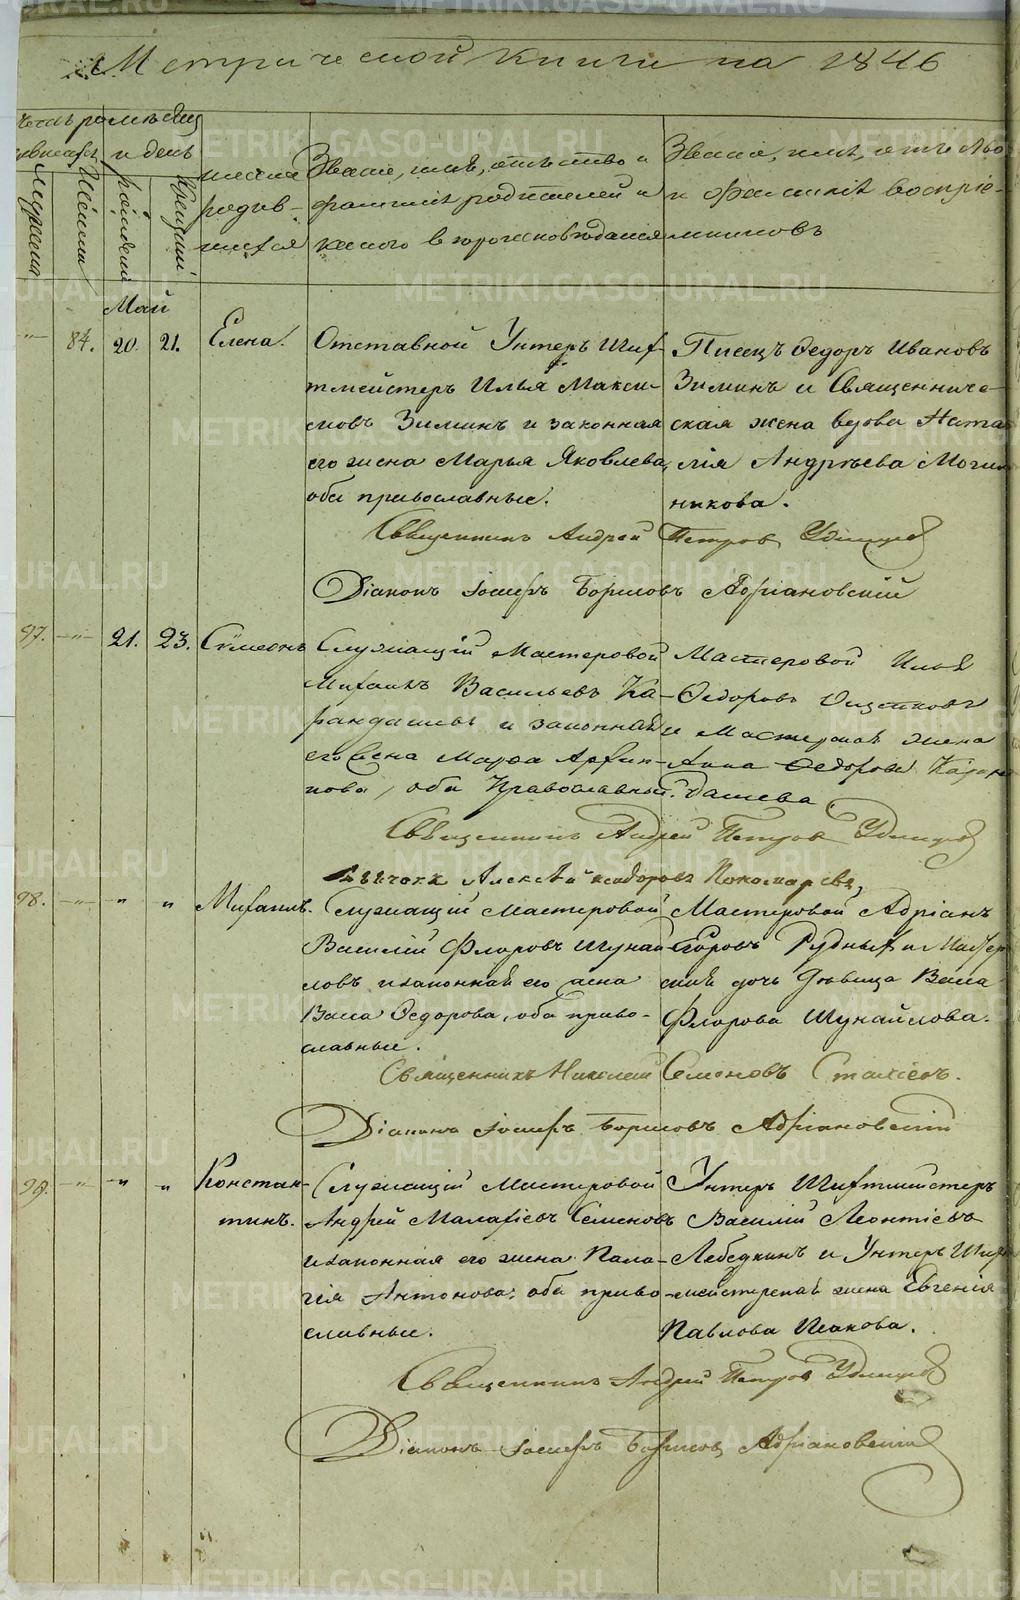 Метрической книги на 1846
Мѣсяцъ и день
Имена родив-шихся
Званіе, имя, отчество и фамилія родителей и какого вѣроисповѣданія
Званіе, имя, отчество и фамилія воспріе-мниковъ
Май
84. 20. 21. Елена.
Отставной Унтеръ Шиx-
тмейстеръ Илья Макси-
мовъ Зиминъ и законная
его жена Марья Яковлева,
оба православные.
Писецъ Ѳедоръ Ивановъ
Зиминъ и Священниче-
ская жена вдова Ната
лія Андрѣева
никова.
Священникъ Андрей Петровъ Удинцовъ
Діаконъ Іосифъ Борисовъ Адріановскій
97. 21. 23. Сѵмеонъ
Служащій Мастеровой
Михаилъ Васильевъ Ка-
рандашевъ и законная
его жена Марѳа
оба Православные.
Мастеровой Илья
Ѳедоровъ
и Мастерская жена
Анна Ѳедорова Каран
дашева
Священникъ Андрей Петровъ Удинцовъ
Дьячокъ Алексѣй Пономаревъ,
98. " " Михаилъ.
Служащій Мастеровой
Василій Флоровъ Шунай
ловъ и законная его жена
Васса Ѳедорова, оба право-
славные.
Мастеровой Адріанъ
Егоровъ Рудныхъ и
ская дочь дѣвица Васса
Флорова Шунайлова.
Священникъ Николай Семеновъ
Діаконъ Іосифъ Борисовъ Адріановскій
99. " " Констан-
тинъ.
Служащій Мастеровой
Андрей Малахіевъ Семеновъ
и законная его жена Пела-
гія Антонова, оба право-
славные.
Унтеръ Шихтмейстеръ
Василій Леонтіевъ
Лебедкинъ и Унтеръ Ших
мейстерская жена Евгенія
Павлова Исакова.
Священникъ Андрей Петровъ Удинцовъ
Діаконъ Іосифъ Борисовъ Адріановскій
METRIKI.GASO-URAL.RU